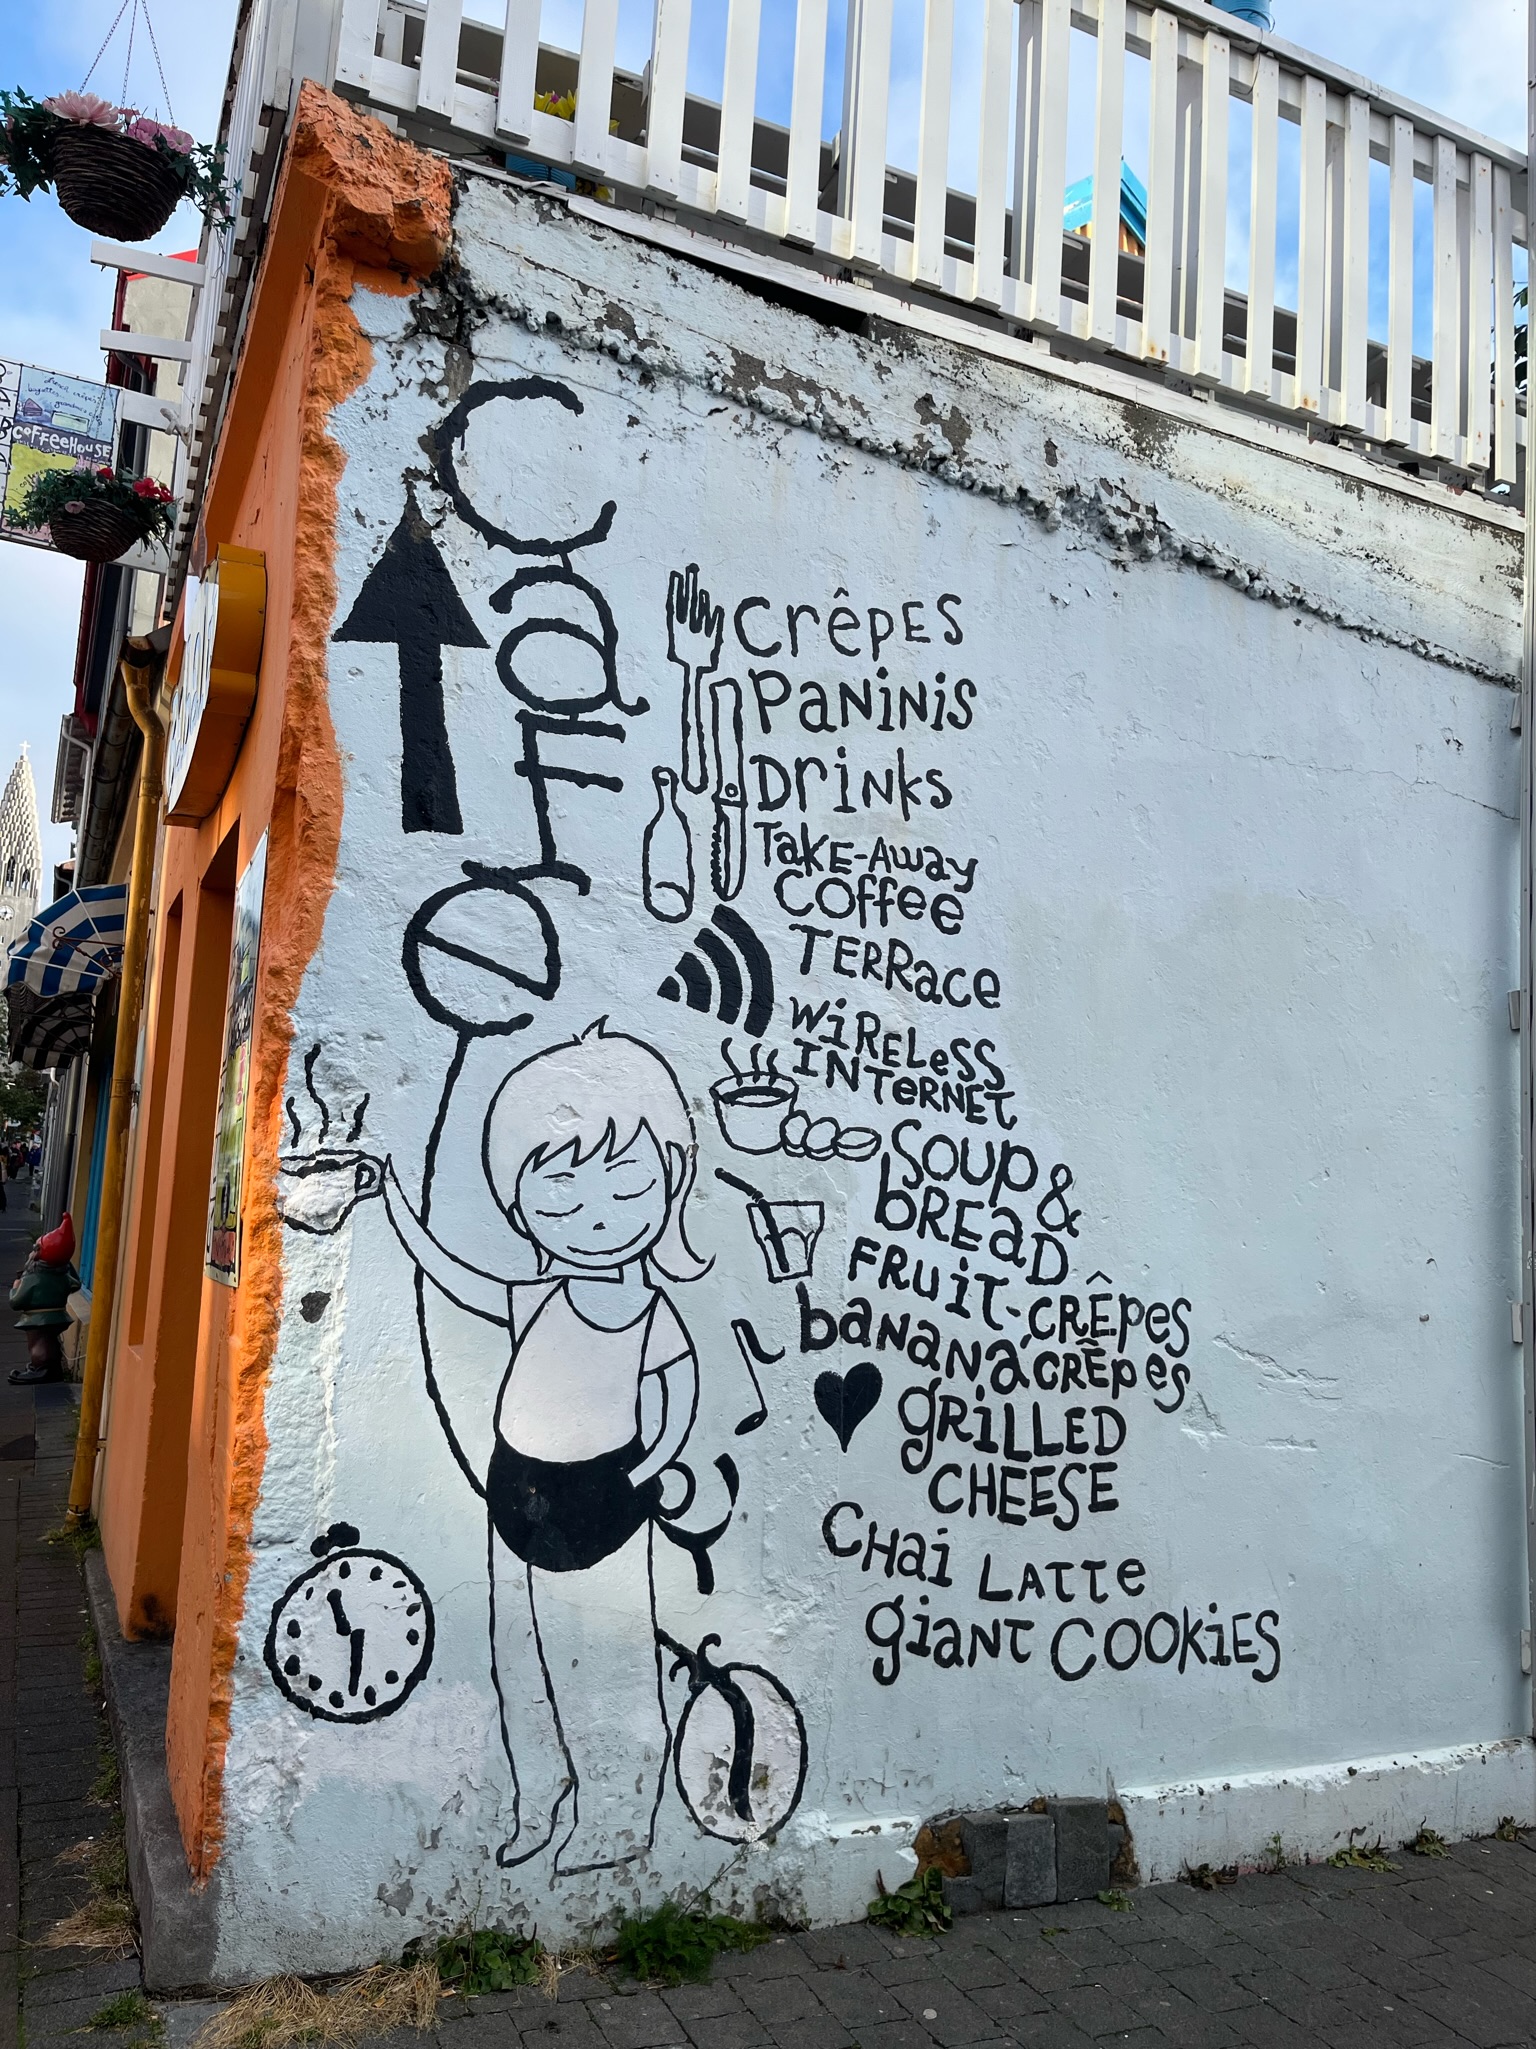 COFFEEHOUSE
CaFe
CRêPES
PaNiNiS
DRiNkS
TaKE-AWay
COffee
TERRace
WiReLeSS
INTeRNET
SOUP &
bREaD
FRuiT-CRÊPes
baNaNa CRÊPes
gRiLLED
CHEESE
CHai LaTTe
giaNT COOKiES